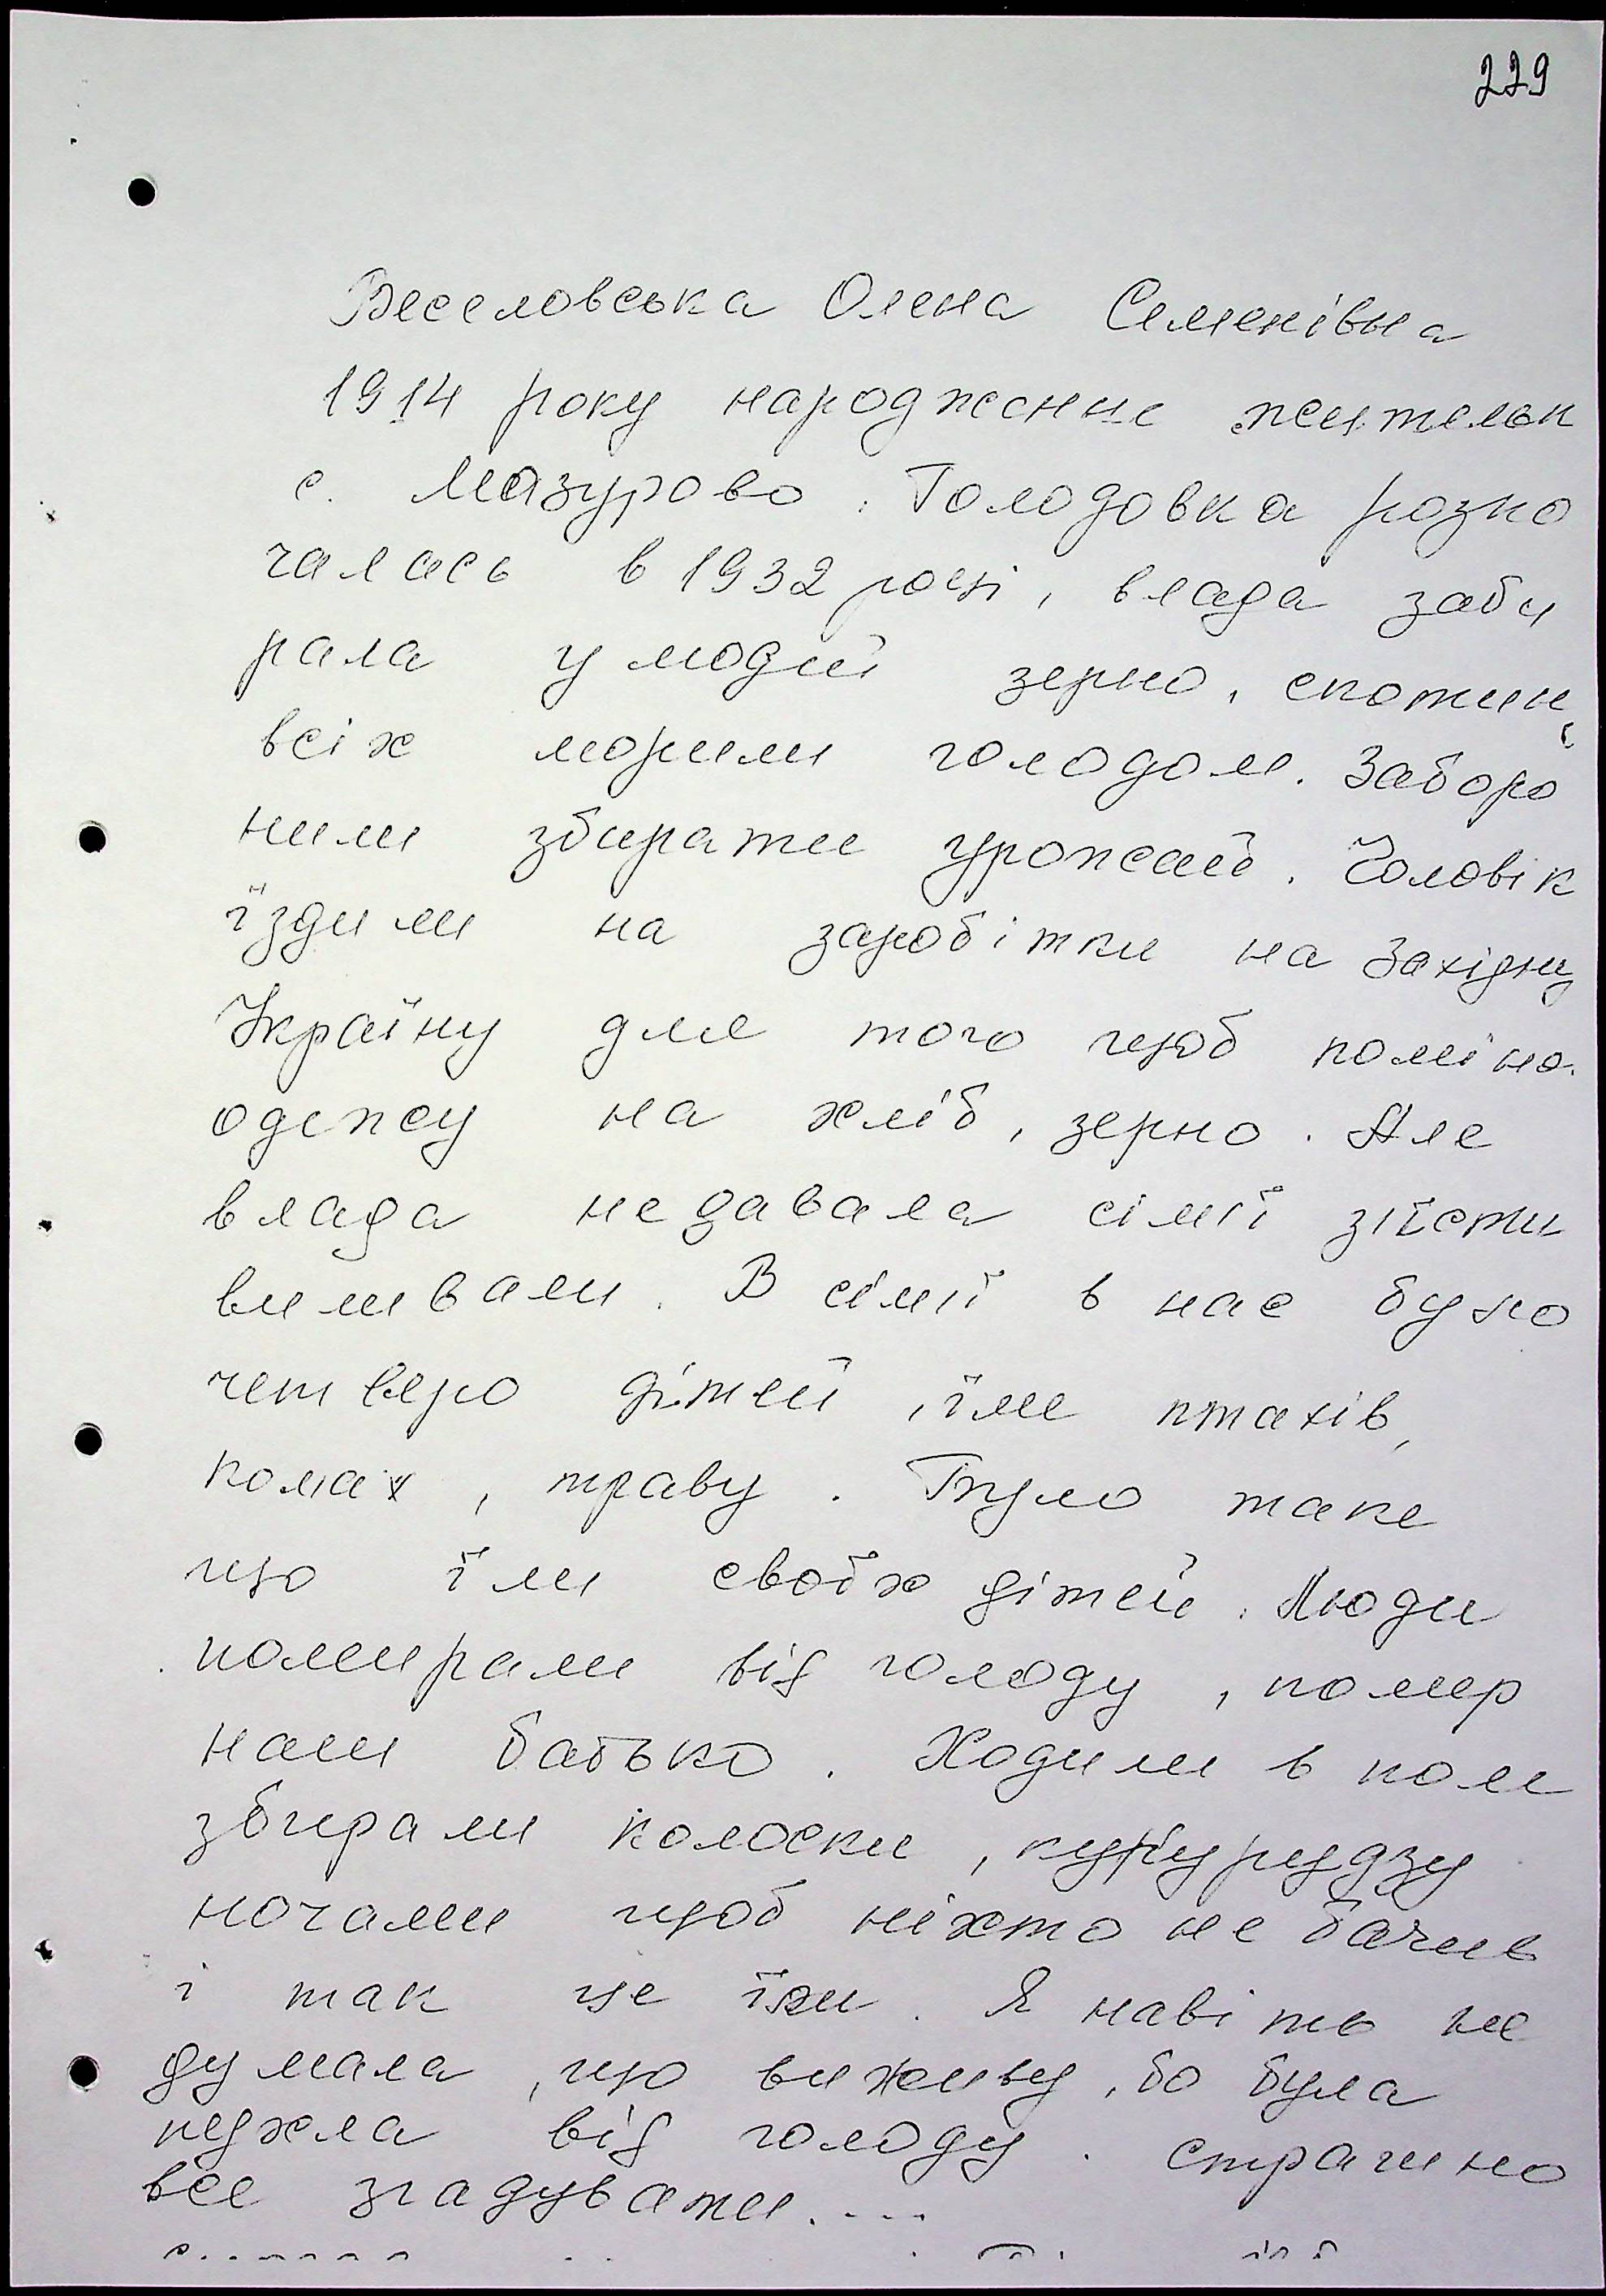 229
Веселовська Олена Семенівна
1914 року народження жительк
с. Мазурово. Голодовка розпо
чалась в 1932 році, влада заби
рала у людей зерно, скотину,
всіх морили голодом. Заборо
нили збирати урожай. Чоловік
їздили на заробітки на Західну
Україну для того щоб поміно.
одежу на хліб, зерно. Але
влада не давала сімї зїсти
виливали. В сімї в нас було
четверо дітей, їли птахів,
комах, траву. Було таке
що їли своїх дітей. Люди
помирали від голоду, помер
наш батько. Ходили в поле
збирали колоски, кукурудзу
ночами щоб ніхто не бачив
і так це їли. Я навіть не
думала, що виживу, бо була
пухла від голоду. страшно
все згадувати....